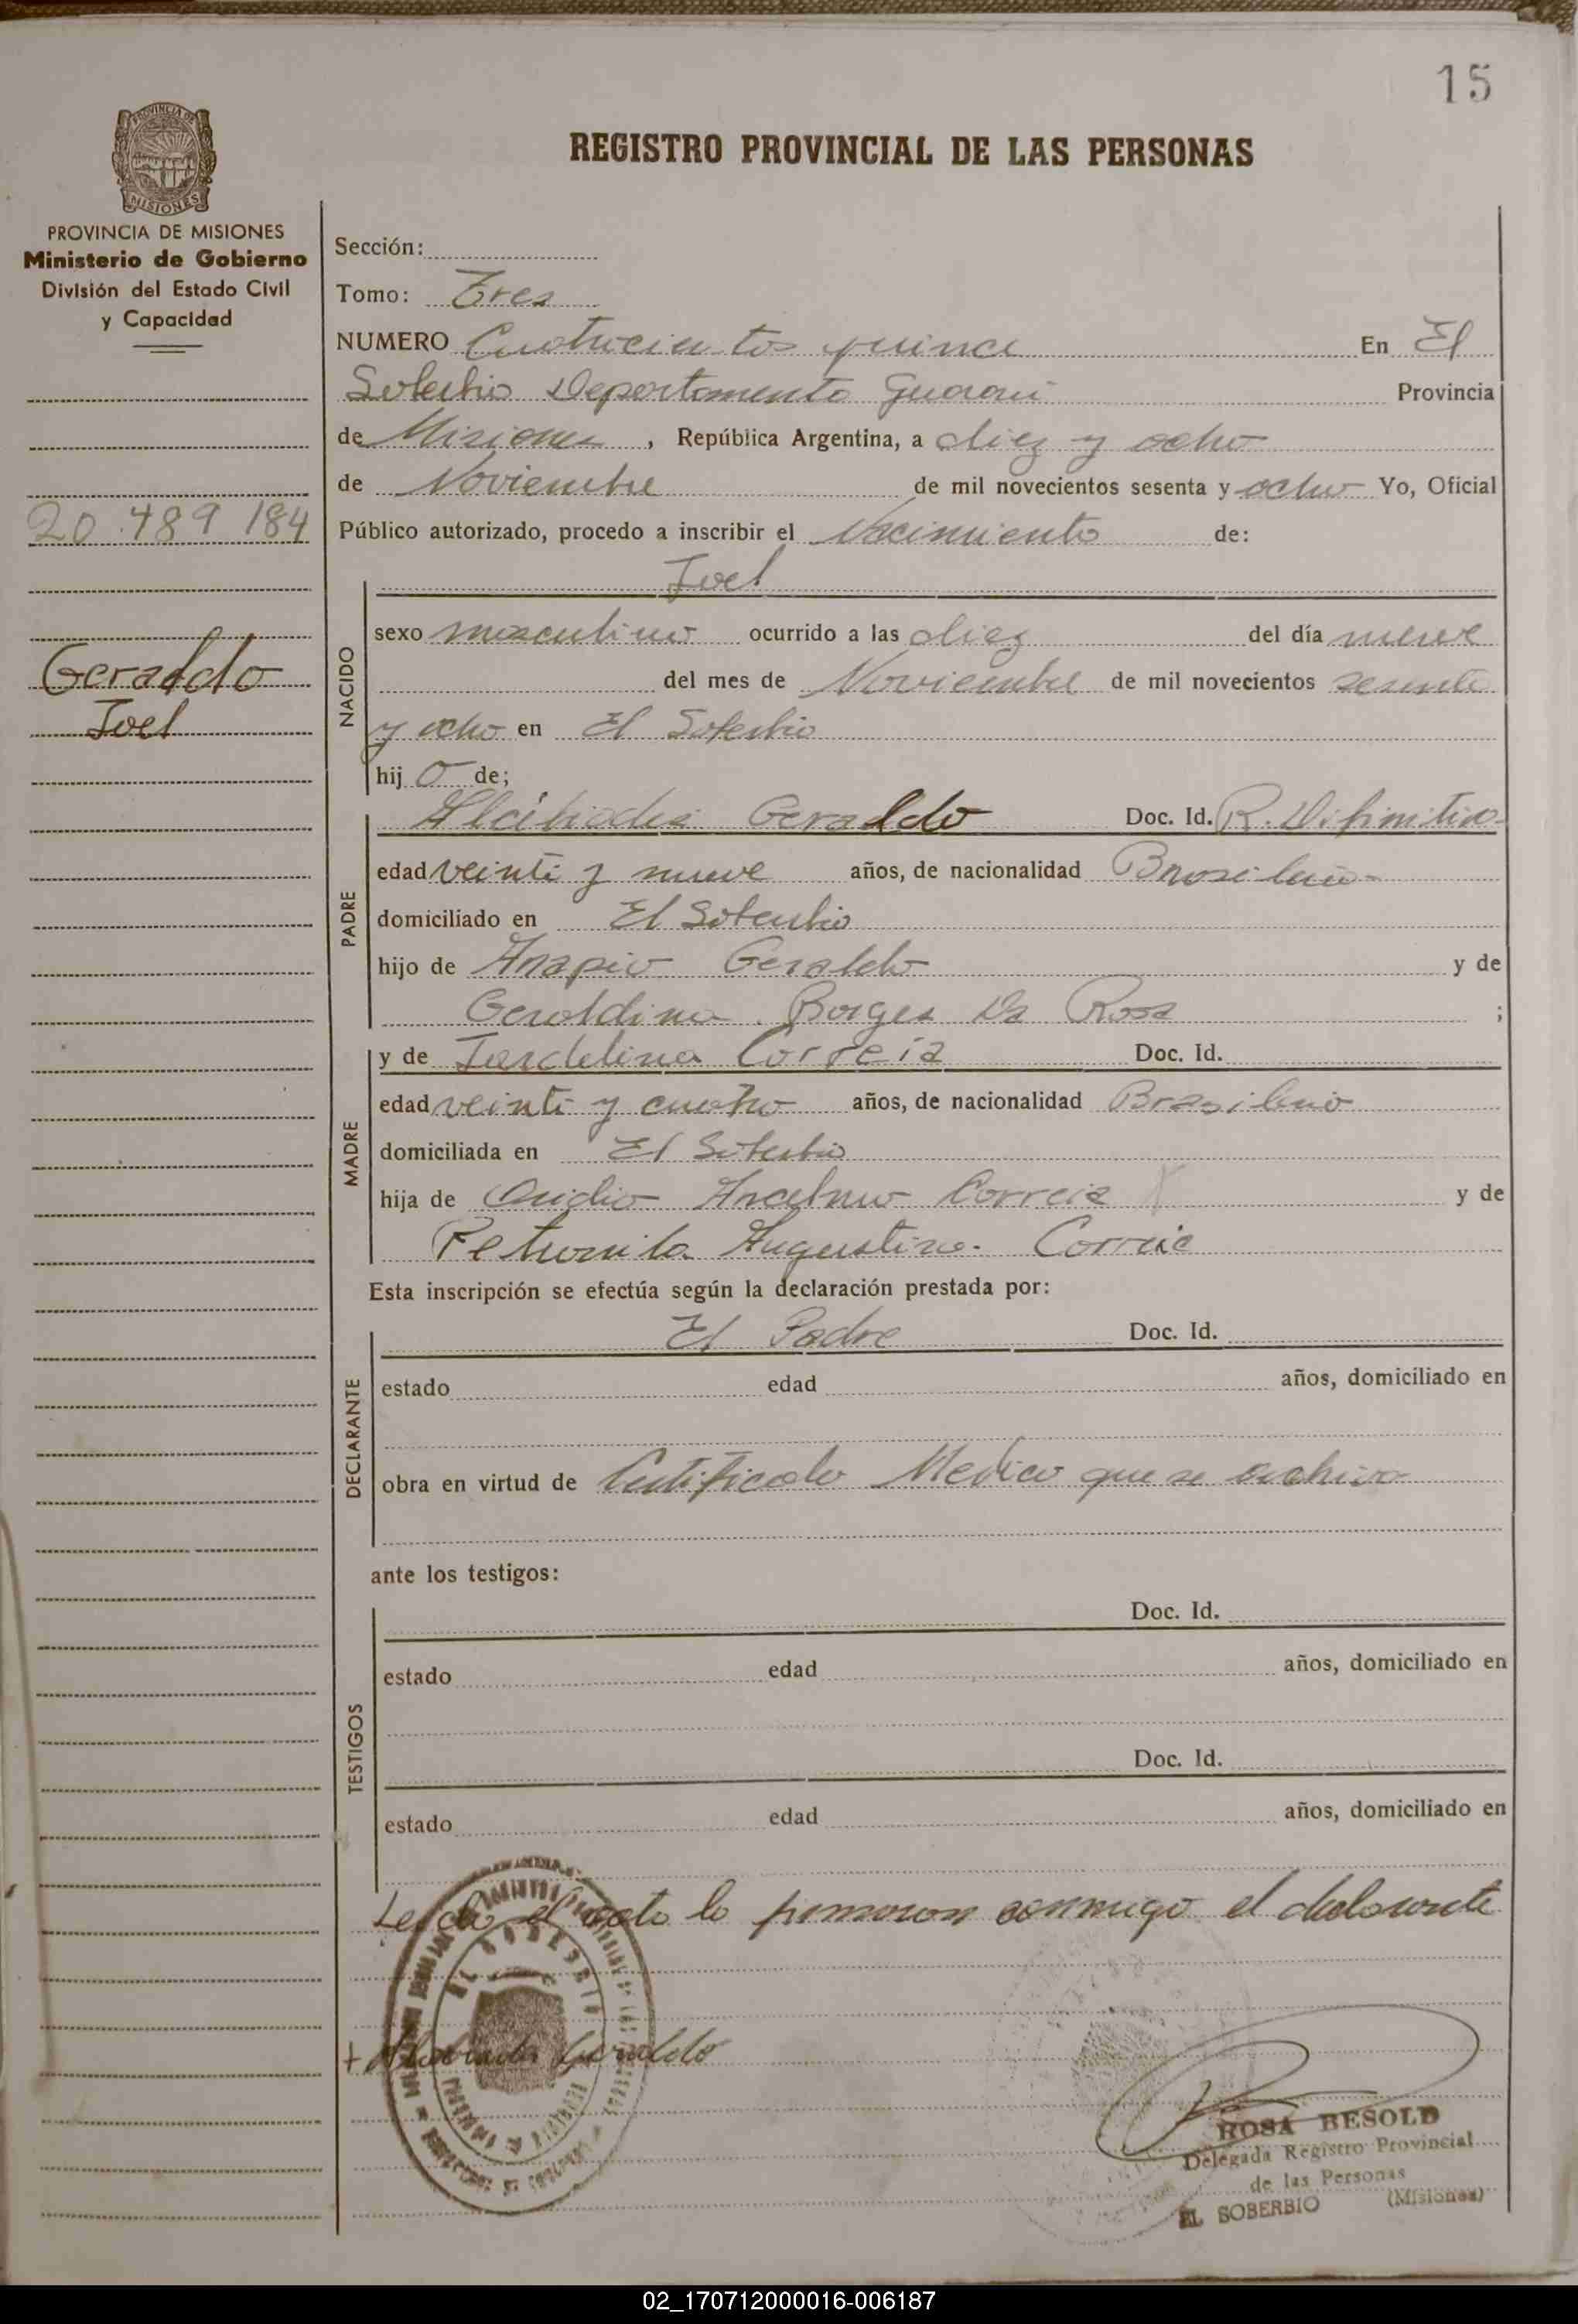 15
PROVINCIA DE
MISIONES
REGISTRO PROVINCIAL DE LAS PERSONAS
PROVINCIA DE MISIONES
Ministerio de Gobierno
División del Estado Civil
y Capacidad
20.489 184
Geraldo
Joel
Sección:
Tomo: Tres
NUMERO Cuatrocientos quince En El
Soberbio Departamento Guarani Provincia
de Misiones, República Argentina, a diez y ocho
de Noviembre de mil novecientos sesenta y ocho Yo, Oficial
Público autorizado, procedo a inscribir el Nacimiento de:
Joel
NACIDO
sexo masculino ocurrido a las diez del día nueve
del mes de Noviembre de mil novecientos sesenta
y ocho en El Soberbio
hijo de;
PADRE
Alcibiades Geraldo Doc. Id. R. Difinitivo-
edad veinti y nueve años, de nacionalidad Brasileño-
domiciliado en El Soberbio
hijo de Anapio Geraldo y de
Geraldina Borges Da Rosa ;
MADRE
y de Jurdelina Correia Doc. Id.
edad veinti y cuatro años, de nacionalidad Brasileño
domiciliada en El Soberbio
hija de Ancelmo Correia y de
Petronila Augustina Correia
Esta inscripción se efectúa según la declaración prestada por:
DECLARANTE
El Padre Doc. Id.
estado edad años, domiciliado en
obra en virtud de Certificado Medico que se archiva
ante los testigos:
TESTIGOS
Doc. Id.
estado edad años, domiciliado en
Doc. Id.
estado edad años, domiciliado en
Leido el acto lo firmaron conmigo el declarante
EL SOBERBIO
Geraldo
ROSA BESOLD
Delegada Registro Provincial
de las Personas
EL SOBERBIO (Misiones)
02_170712000016-006187